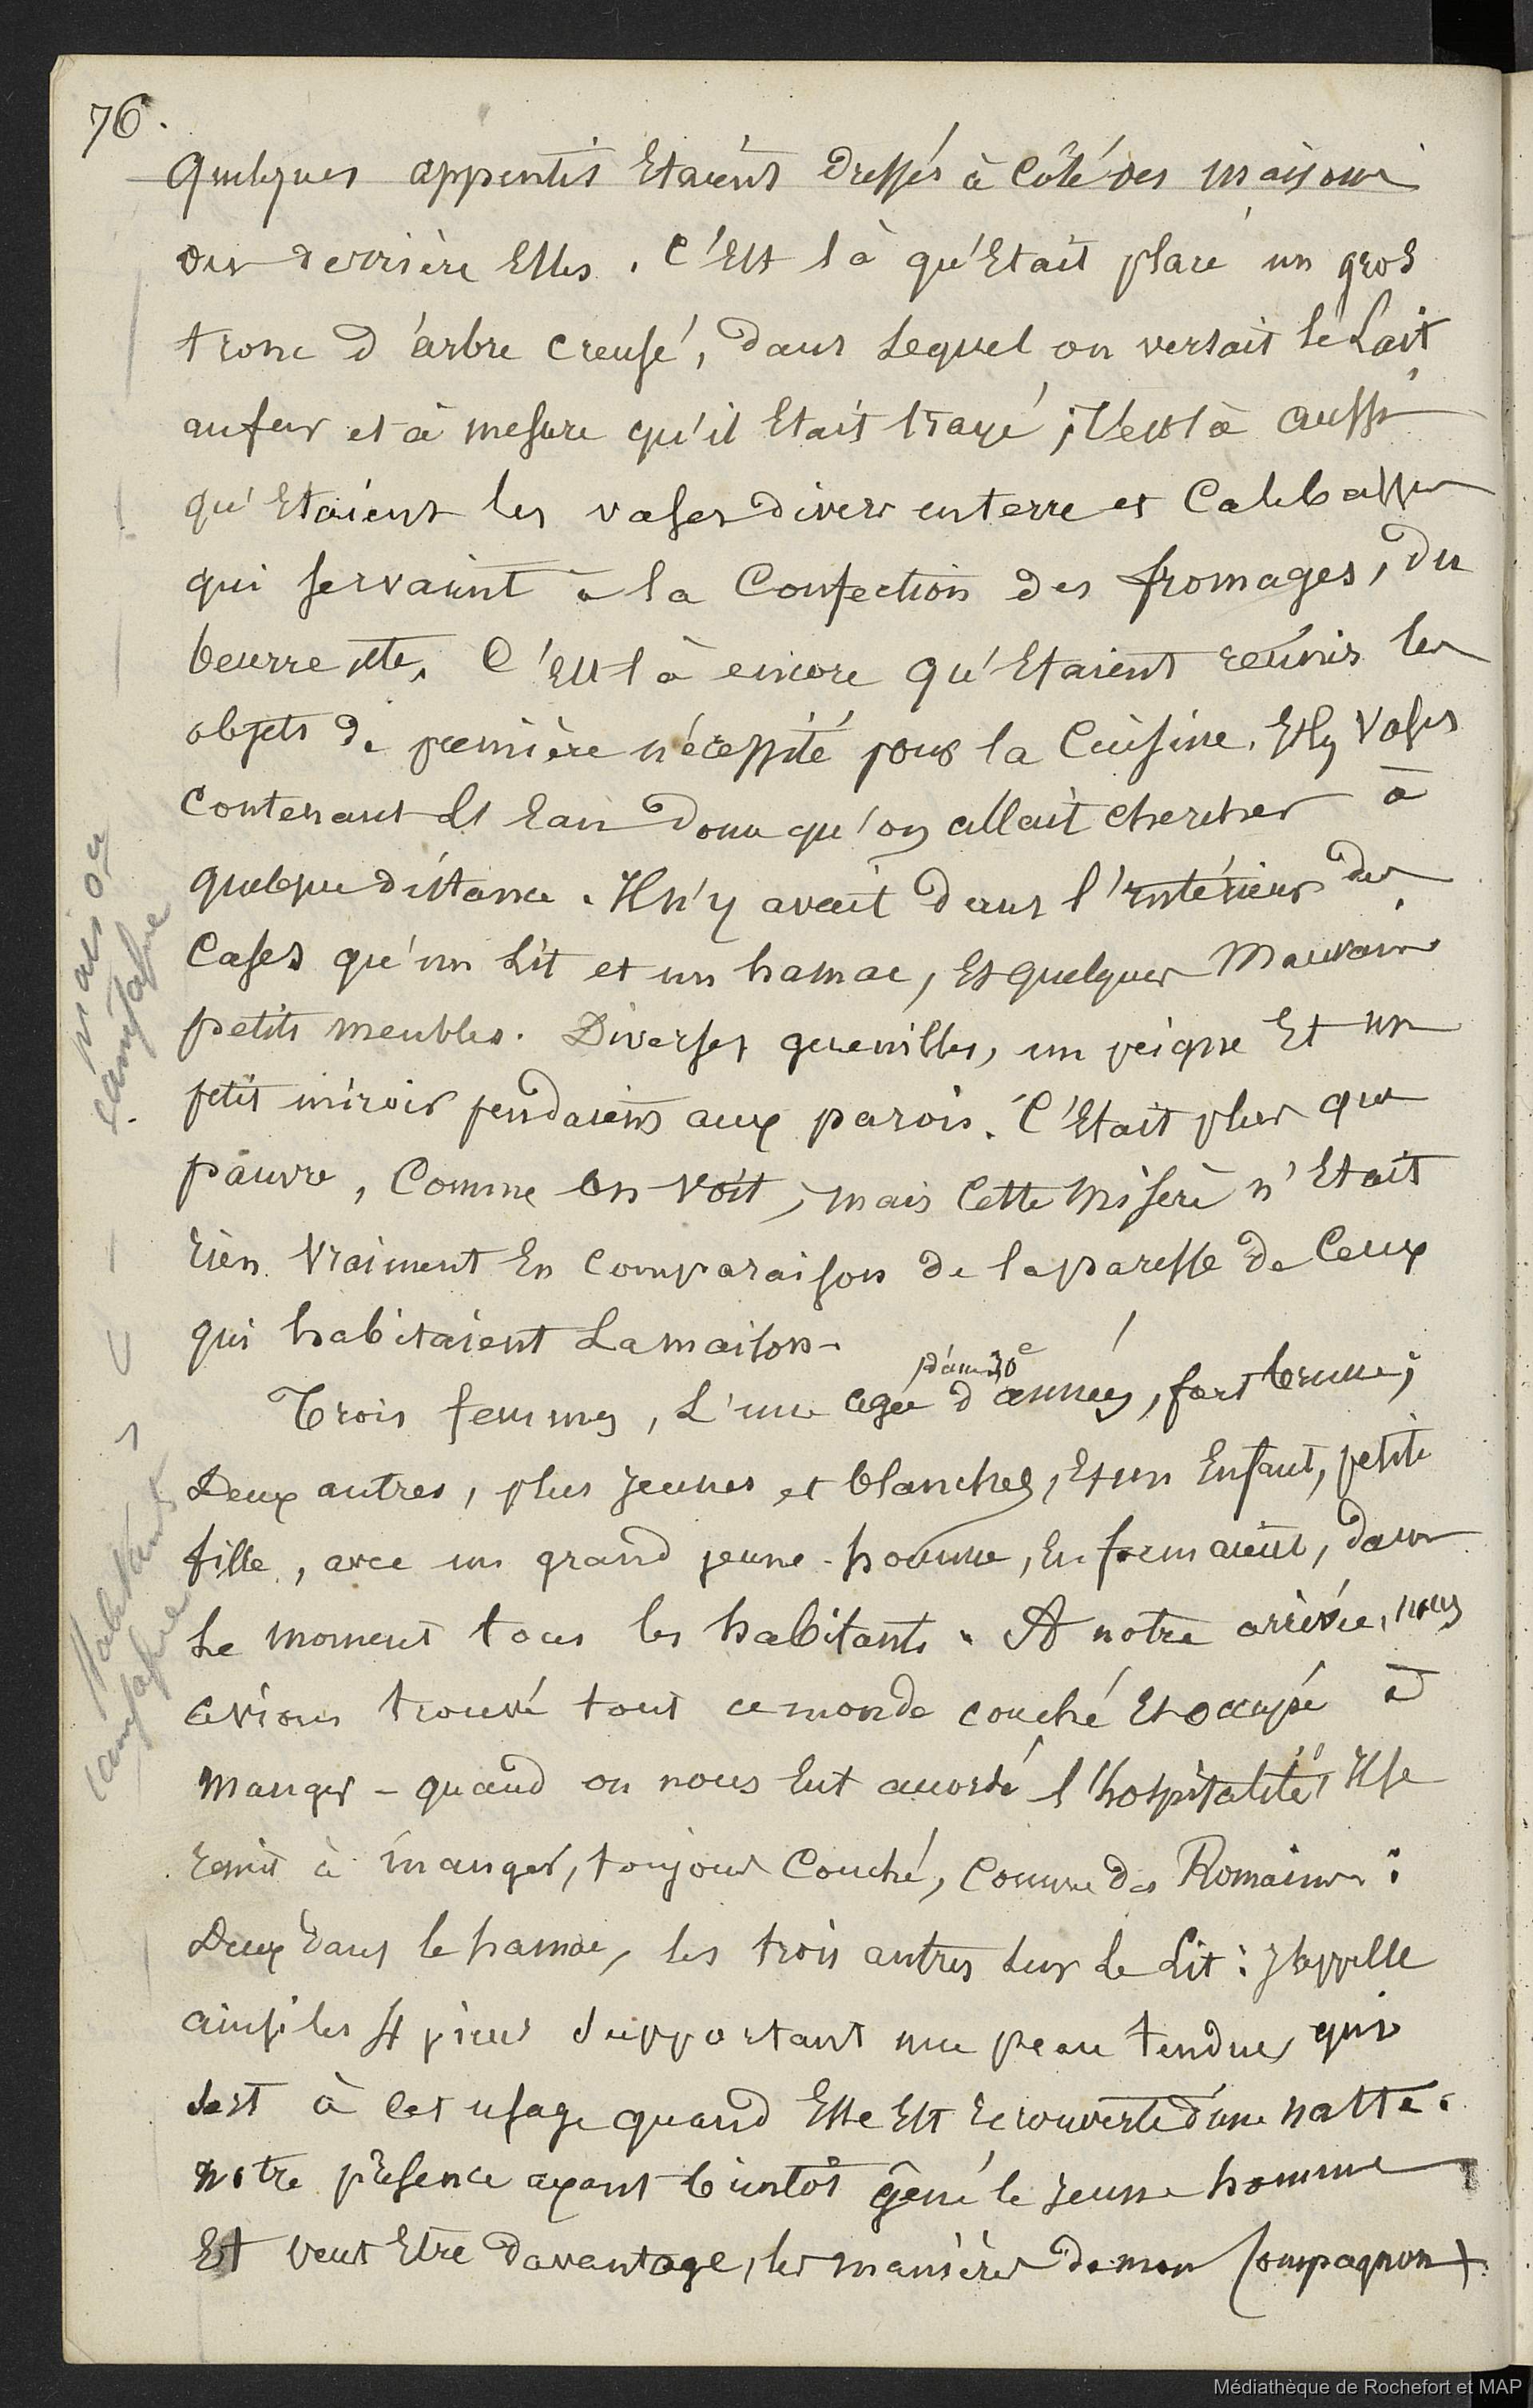 76.
Quelques appentis Etaient dressés à Côté des maisons
ou derrière Elles. C'Est là qu'Etait placé un gros
tronc d'arbre creusé, dans Lequel on versait le Lait
au fur et à mesure qu'il Etait trayé ; C'est là aussi
qu'Etaient les vases divers en terre et Calebasses
qui servaient à la Confection des fromages, du
beurre etc. C'Est là encore qu'Etaient réunis les
objets de première nécessité pour la Cuisine. Et les Vases
contenant de l'Eau douce qu'on allait chercher à
quelque distance. Il n'y avait dans l'intérieur des
Cases qu'un Lit et un hamac, Et quelques Mauvais
petits meubles. Diverses guenilles, un peigne Et un
petit miroir pendaient aux parois. C'Etait plus que
pauvre, Comme On Voit, mais Cette Misère n'Etait
rien Vraiment En Comparaison de la paresse de Ceux
qui habitaient La maison.
Trois femmes, L'une agée d'années, fort brune ;
Deux autres, plus jeunes et blanches, Et un Enfant, petite
fille, avec un grand jeune homme, En formaient, dans
Le moment tous les habitants. A notre arrivée, nous
avions trouvé tout ce monde couché Et occupé à
Manger - quand on nous Eut accordé l'hospitalité, Il se
remit à manger, toujours Couché, Comme des Romains :
Deux dans le hamac, les trois autres sur Le Lit : J'appelle
ainsi les 4 pieux supportant une peau tendue, qui
sert à Cet usage quand Elle Est recouverte d'une natte.
Notre présence ayant bientôt gêné le jeune homme
Et peut Etre davantage, les manières de mon Compagnon
maison
campagne
habitants
campagne
Médiathèque de Rochefort et MAP